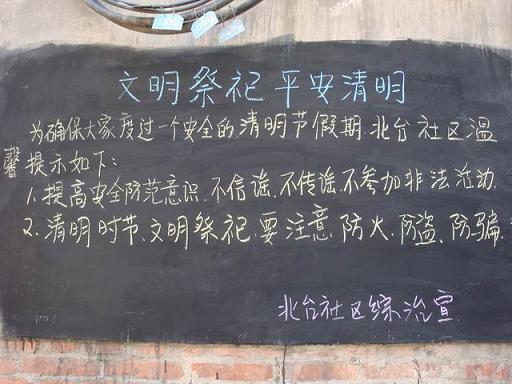 文明祭祀 平安清明
为确保大家度过一个安全的清明节假期.北台社区温
馨提示如下:
1.提高安全防范意识.不信谣.不传谣不参加非法活动.
2.清明时节、文明祭祀.要注意防火.防盗、防骗.
北台社区综治宣